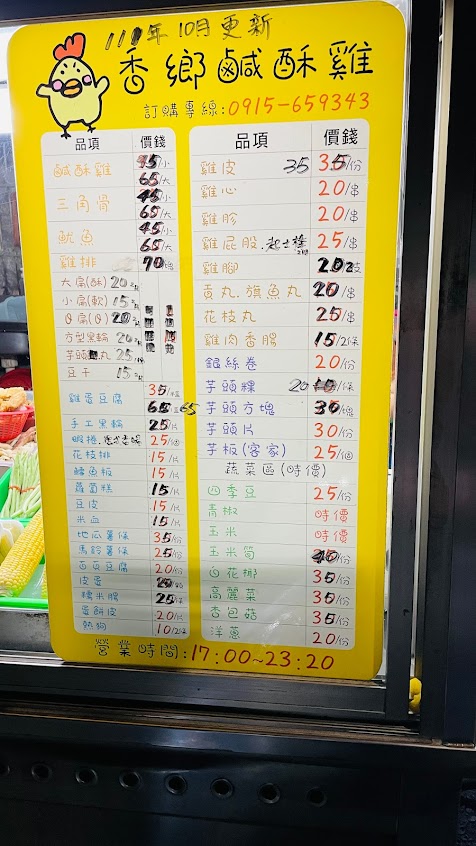 年10月更新
香鄉鹹酥雞
訂購專線:0915-659343
品項 價錢
鹹酥雞 45/小
65/大
三角骨 45/小
65/大
魷魚 45/小
65/大
雞排 70/塊
大扁(酥) 20
小扁(軟) 15
Q扁(Q) 20
方型黑輪 20
芋頭丸 25
豆干 15
雞蛋豆腐 35/
65
手工黑輪 25/片
蝦捲 25/個
花枝排 15/片
鱈魚板 15/片
蘿蔔糕 15/片
豆皮 15/片
米血 15/片
地瓜薯條 35/份
馬鈴薯條 25/份
百頁豆腐 20/份
皮蛋 20
糯米腸 25/條
蛋餅皮 20/片
熱狗 10/
品項 價錢
雞皮 35 35/份
雞心 20/串
雞胗 20/串
雞屁股 25/串
雞腳 20 2支
貢丸.旗魚丸 20/串
花枝丸 25/串
雞肉香腸 15/2條
銀絲卷 20/份
芋頭粿 20 /份
芋頭方塊 30/塊
芋頭片 30/份
芋板(客家) 25/個
蔬菜區(時價)
四季豆 25/份
青椒 時價
玉米 時價
玉米筍 40/份
白花椰 35/份
高麗菜 35/份
杏包菇 35/份
洋蔥 20/份
營業時間:17:00~23:20